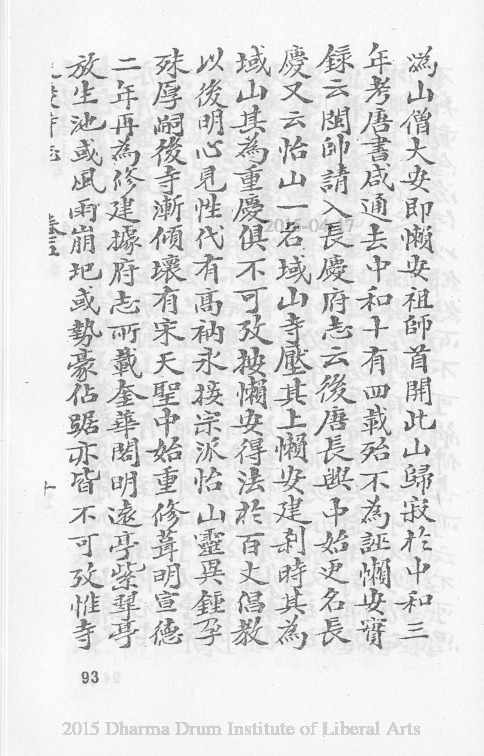 溈山僧大安即懶安祖師首開此山歸寂於中和三
年考唐書咸通去中和十有四載殆不為誣懶安寶
録云閩帥請入長慶府志云後唐長興中始更名長
慶又云怡山一名域山寺壓其上懶安建刹時其為
域山其為重慶俱不可攷按懶安得法於百丈倡教
以後明心見性代有高衲永接宗派怡山靈異鍾孕
殊厚嗣後寺漸傾壞有宋天聖中始重修葺明宣德
二年再為修建據府志所載奎華閣明遠亭紫翠亭
放生池或風雨崩圯或勢豪佔踞亦皆不可攷惟寺
卷三
十
2015-04-17
93
2015 Dharma Drum Institute of Liberal Arts